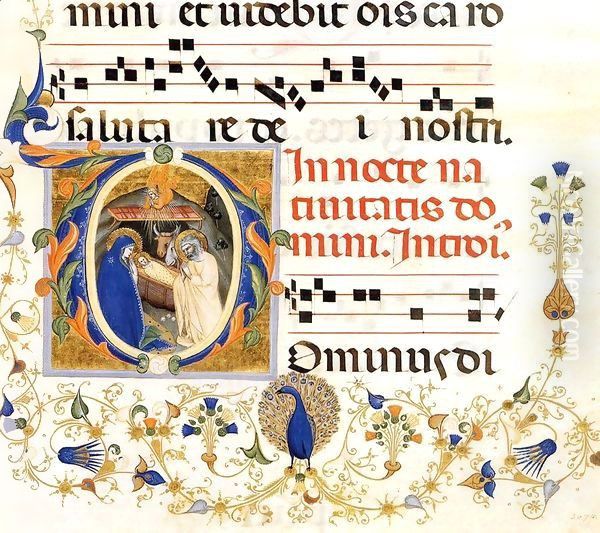 mini et uidebit oīs caro
saluta re de i nostri.
In nocte na
tiuitatis do
mini. Introi⁹
Ominus di